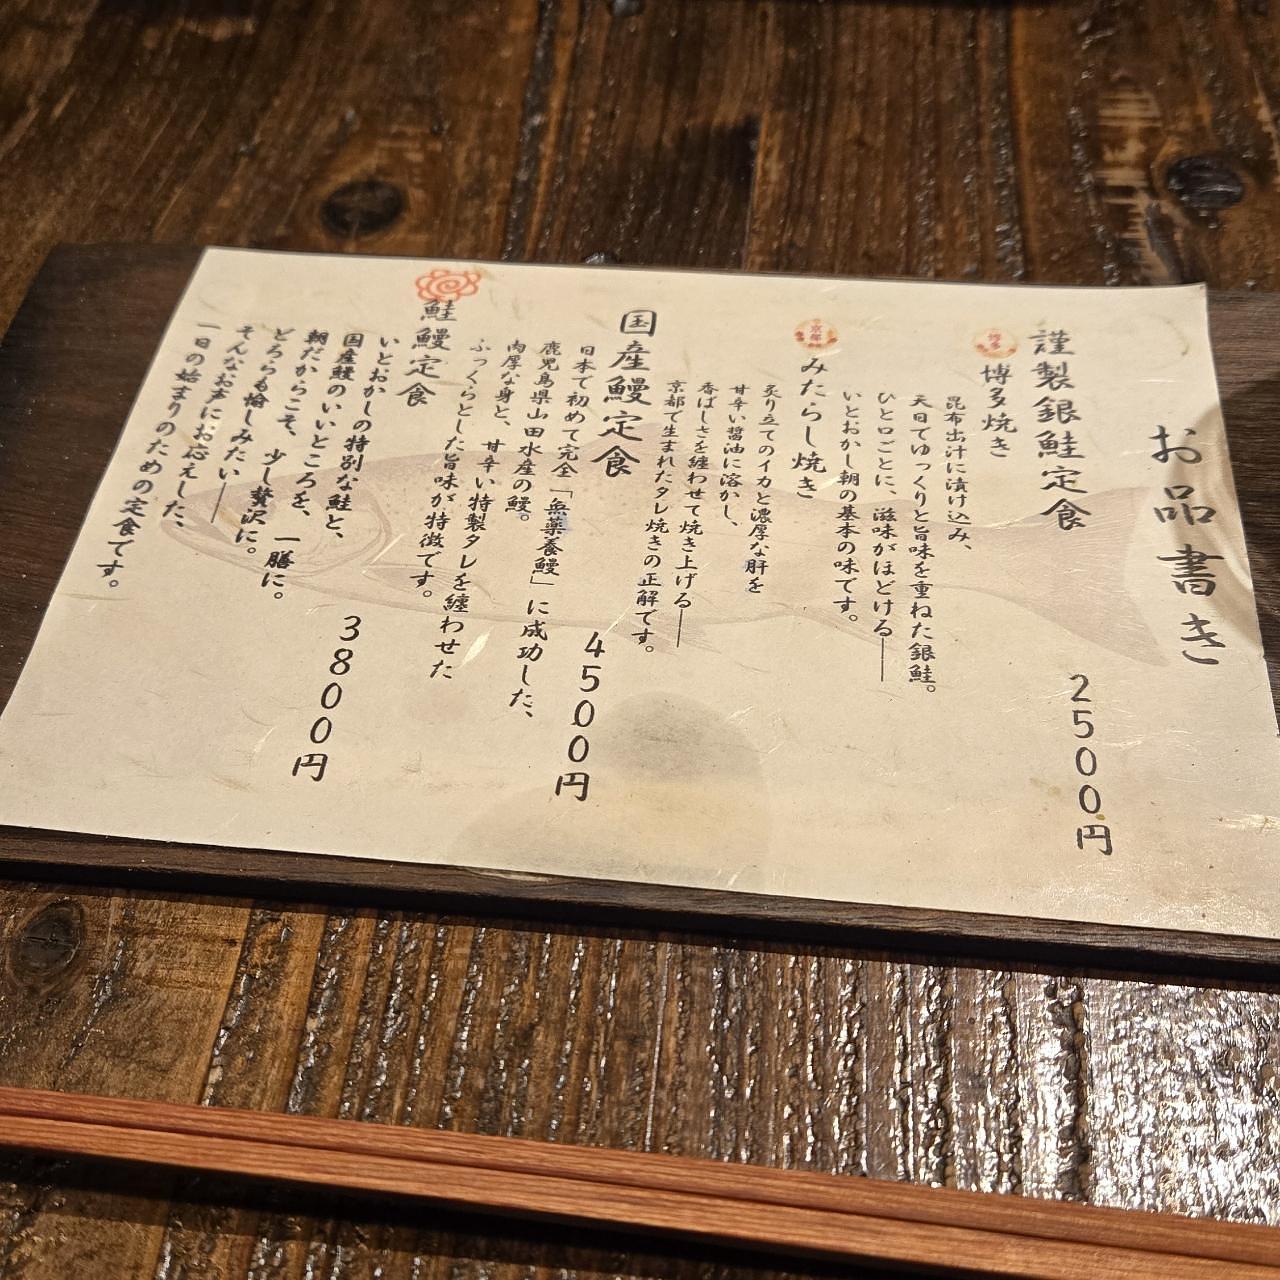 お品書き
謹製銀鮭定食
2500円
博多
博多焼き
昆布出汁に漬け込み、
天日でゆっくりと旨味を重ねた銀鮭。
ひと口ごとに、滋味がほどける――
いとおかし朝の基本の味です。
京都
みたらし焼き
炙り立てのイカと濃厚な肝を
甘辛い醤油に溶かし、
香ばしさを纏わせて焼き上げる――
京都で生まれたタレ焼きの正解です。
国産鰻定食
4500円
日本で初めて完全「無薬養鰻」に成功した、
鹿児島県山田水産の鰻。
肉厚な身と、甘辛い特製タレを纏わせた
ふっくらとした旨味が特徴です。
鮭鰻定食
3800円
いとおかしの特別な鮭と、
国産鰻のいいところを、一膳に。
朝だからこそ、少し贅沢に。
どちらも愉しみたい――
そんなお声にお応えした、
一日の始まりのための定食です。